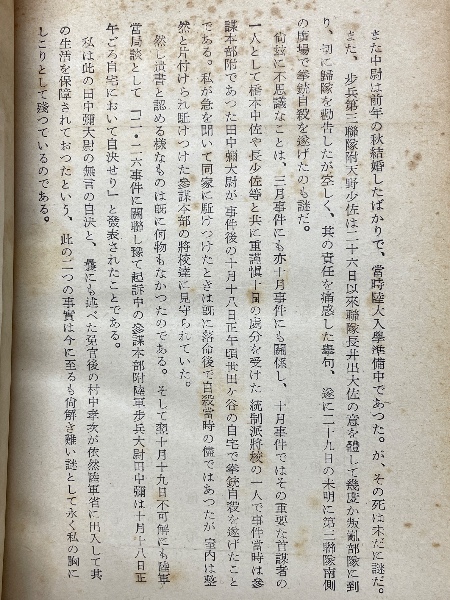 また中尉は前年の秋結婚したばかりで、當時陸大入學準備中であつた。が、その死は未だに謎だ。
また、步兵第三聯隊附天野少佐は二十六日以來聯隊長井出大佐の意を體して幾度か叛亂部隊に到
り、切に歸隊を勸告したが空しく、其の責任を痛感した擧句、遂に二十九日の未明に第三聯隊南側
の廣場で拳銃自殺を遂げたのも謎だ。
尙玆に不思議なことは、三月事件にも亦十月事件にも關係し、十月事件ではその重要な首謀者の
一人として橋本中佐や長少佐等と共に重謹愼十日の處分を受けた統制派將校の一人で事件當時は參
謀本部附であつた田中彌大尉が事件後の十月十八日正午頃世田ヶ谷の自宅で拳銃自殺を遂げたこと
である。私が急を聞いて同家に駈けつけたときは旣に落命後で自殺當時の儘ではあつたが室內は整
然と片付けられ駈けつけた參謀本部の將校達に見守られていた。
然し遺書と認める樣なものは旣に何物もなかつたのである。そして翌十月十九日不可解にも陸軍
當局談として「二・二六事件に關聯し豫て起訴中の參謀本部附陸軍步兵大尉田中彌は十月十八日正
午ごろ自宅において自決せり」と發表されたことである。
私は此の田中彌大尉の無言の自決と、曩にも述べた免官後の村中孝次が依然陸軍省に出入して其
の生活を保障されておつたという、此の二つの事實は今に至るも尙解き難い謎として永く私の胸に
しこりとして殘つているのである。